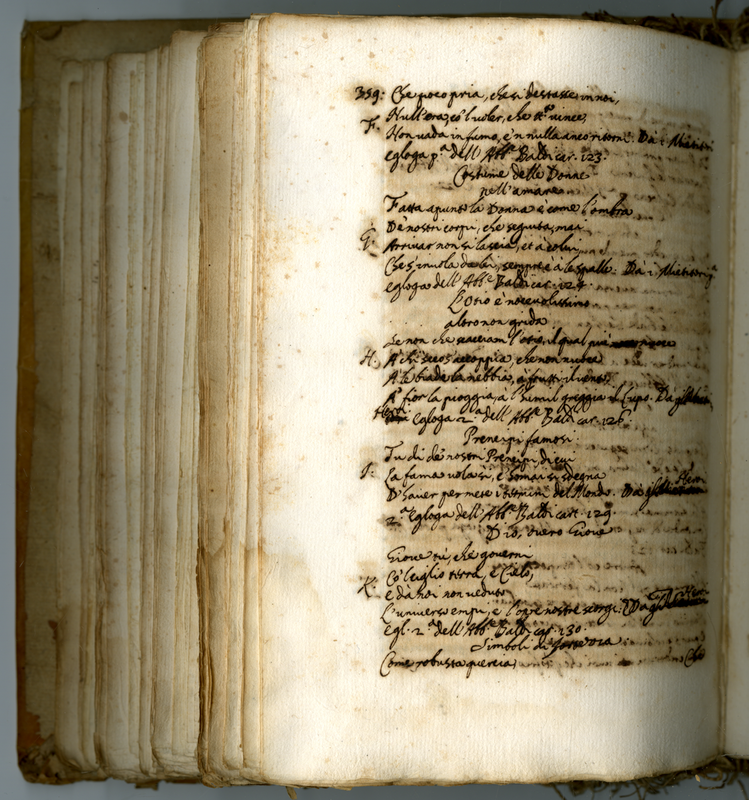 359: Che poco pria, che si destasse in noi,
Null'ora, co'l voler, che vince,
F. Non vada in fumo, e'n nulla anco ritorni. Da i Mietitori
egloga p.a dell'Abb.e Baldi car. 123.
Costume delle Donne
nell'amare
Fatta apunto la Donna è come l'ombra
G. De nostri corpi, che seguita, mai
Arrivar non si lascia, et a colui,
Che s'invola da lei, sempre è a le spalle. Da i Mietitori p.a
egloga dell'Abb.e Baldi car. 124.
L'Otio è nocevolissimo
altro non grida
Se non che scacciam l'otio, il qual più nuoce
H. A chi seco s'accoppia, che non nuoce
A le biade la nebbia, a frutti il vento
A' fior la pioggia, a l'humil greggia il Lupo. Da gl'
Heroi Egloga 2.a dell'Abb.e Baldi car. 126.
Prencipi famosi
Tu di de' nostri Prencipi, di cui
I. La fama vola sì, c'homai si sdegna
D'haver per mete i termini del Mondo. Da gl' Heroi
2.a Egloga dell'Abb.e Baldi cart. 129.
Dio, overo Giove
Giove tù, che governi
K. Co'l ciglio terra, e Cielo,
e da noi non veduto
L'universo empi, e l'opre nostre scorgi. Da gl' Heroi
Egl. 2.a dell'Abb.e Baldi car. 130.
Simboli di
Come robusta quercia,